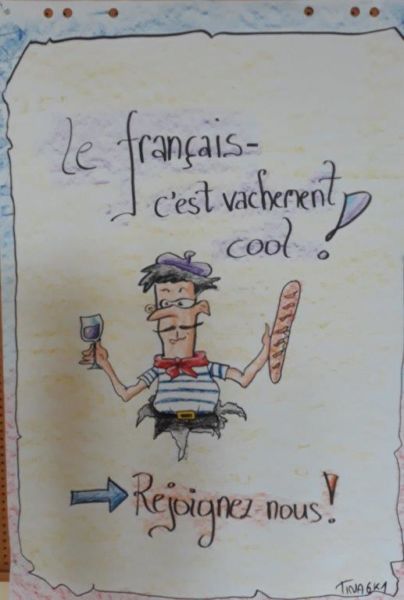 le français-
c'est vachement
cool!
Rejoignez nous!
TINA 6K1